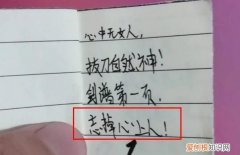 心中无女人，
拔刀自然神！
剑谱第一页，
忘掉心上人！